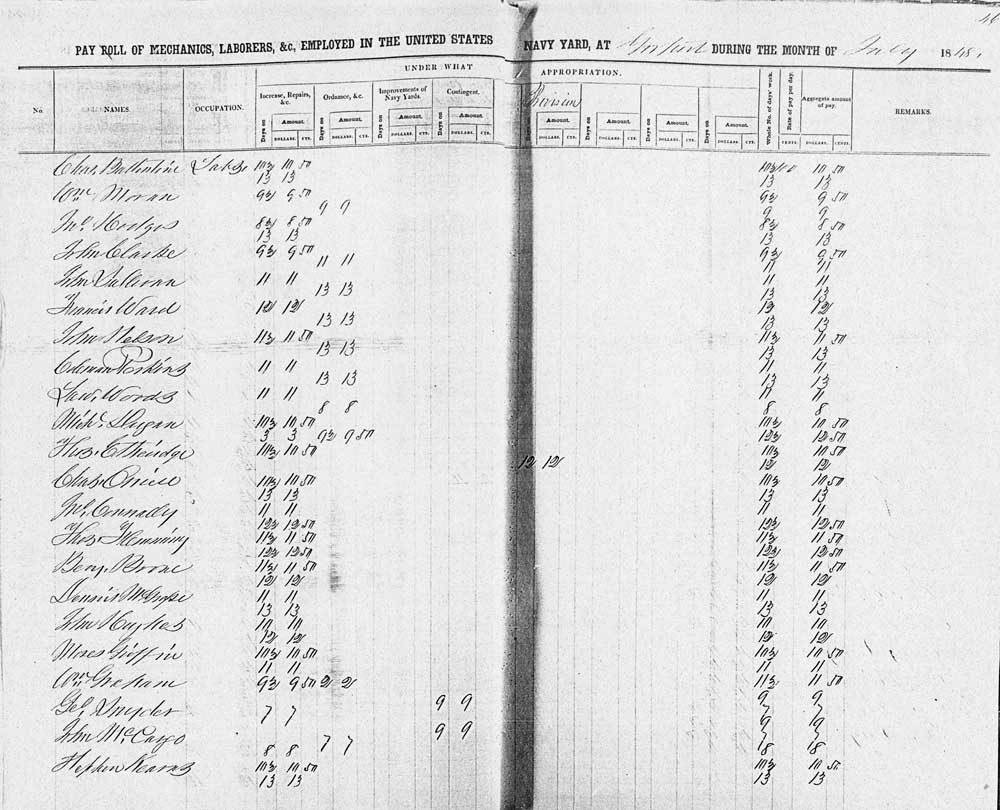 PAY ROLL OF MECHANICS, LABORERS, &c, EMPLOYED IN THE UNITED STATES NAVY YARD, AT Gosport DURING THE MONTH OF July 1848.
UNDER WHAT APPROPRIATION.
No. NAMES. OCCUPATION. Increase, Repairs, &c. Ordnance, &c. Improvements of Navy Yards. Contingent. Provision Whole No. of days' work. Rate of pay per day. Aggregate amount of pay. REMARKS.
Days on Amount. Days on Amount. Days on Amount. Days on Amount. Days on Amount. Days on Amount. Days on Amount. Days on Amount.
DOLLARS. CTS. DOLLARS. CTS. DOLLARS. CTS. DOLLARS. CTS. DOLLARS. CTS. DOLLARS. CTS. DOLLARS. CTS. DOLLARS. CTS. CENTS. DOLLARS. CENTS.
Chas. Ballentine 10½ 10 50 10½ 100 10 50
13 13 13 13
Wm. Moran 9½ 9 50 9½ 9 50
9 9 9 9
Jno. Hodges 8½ 8 50 8½ 8 50
13 13 13 13
John Clarke 9½ 9 50 9½ 9 50
11 11 11 11
John Sullivan 11 11 11 11
13 13 13 13
Francis Ward 12 12 12 12
13 13 13 13
John Nelson 11½ 11 50 11½ 11 50
13 13 13 13
11 11 11 11
13 13 13 13
Woods 11 11 11 11
8 8 8 8
Michl. Dugan 10½ 10 50 10½ 10 50
3 3 9½ 9 50 12½ 12 50
Thos. Etheridge 10½ 10 50 10½ 10 50
12 12 12 12
Chas. 10½ 10 50 10½ 10 50
13 13 13 13
Jno. Connally 11 11 11 11
12½ 12 50 12½ 12 50
Thos. Flemming 11½ 11 50 11½ 11 50
12½ 12 50 12½ 12 50
Benj. Boone 11½ 11 50 11½ 11 50
12 12 12 12
Dennis 11 11 11 11
13 13 13 13
John Hughes 10 10 10 10
12 12 12 12
Moses Griffin 10½ 10 50 10½ 10 50
11 11 11 11
Wm. Graham 9½ 9 50 2 2 11½ 11 50
9 9 9 9
Geo. Snyder 7 7 7 7
9 9 9 9
John McCargo 7 7 7 7
8 8 8 8
Stephen Kearns 10½ 10 50 10½ 10 50
13 13 13 13